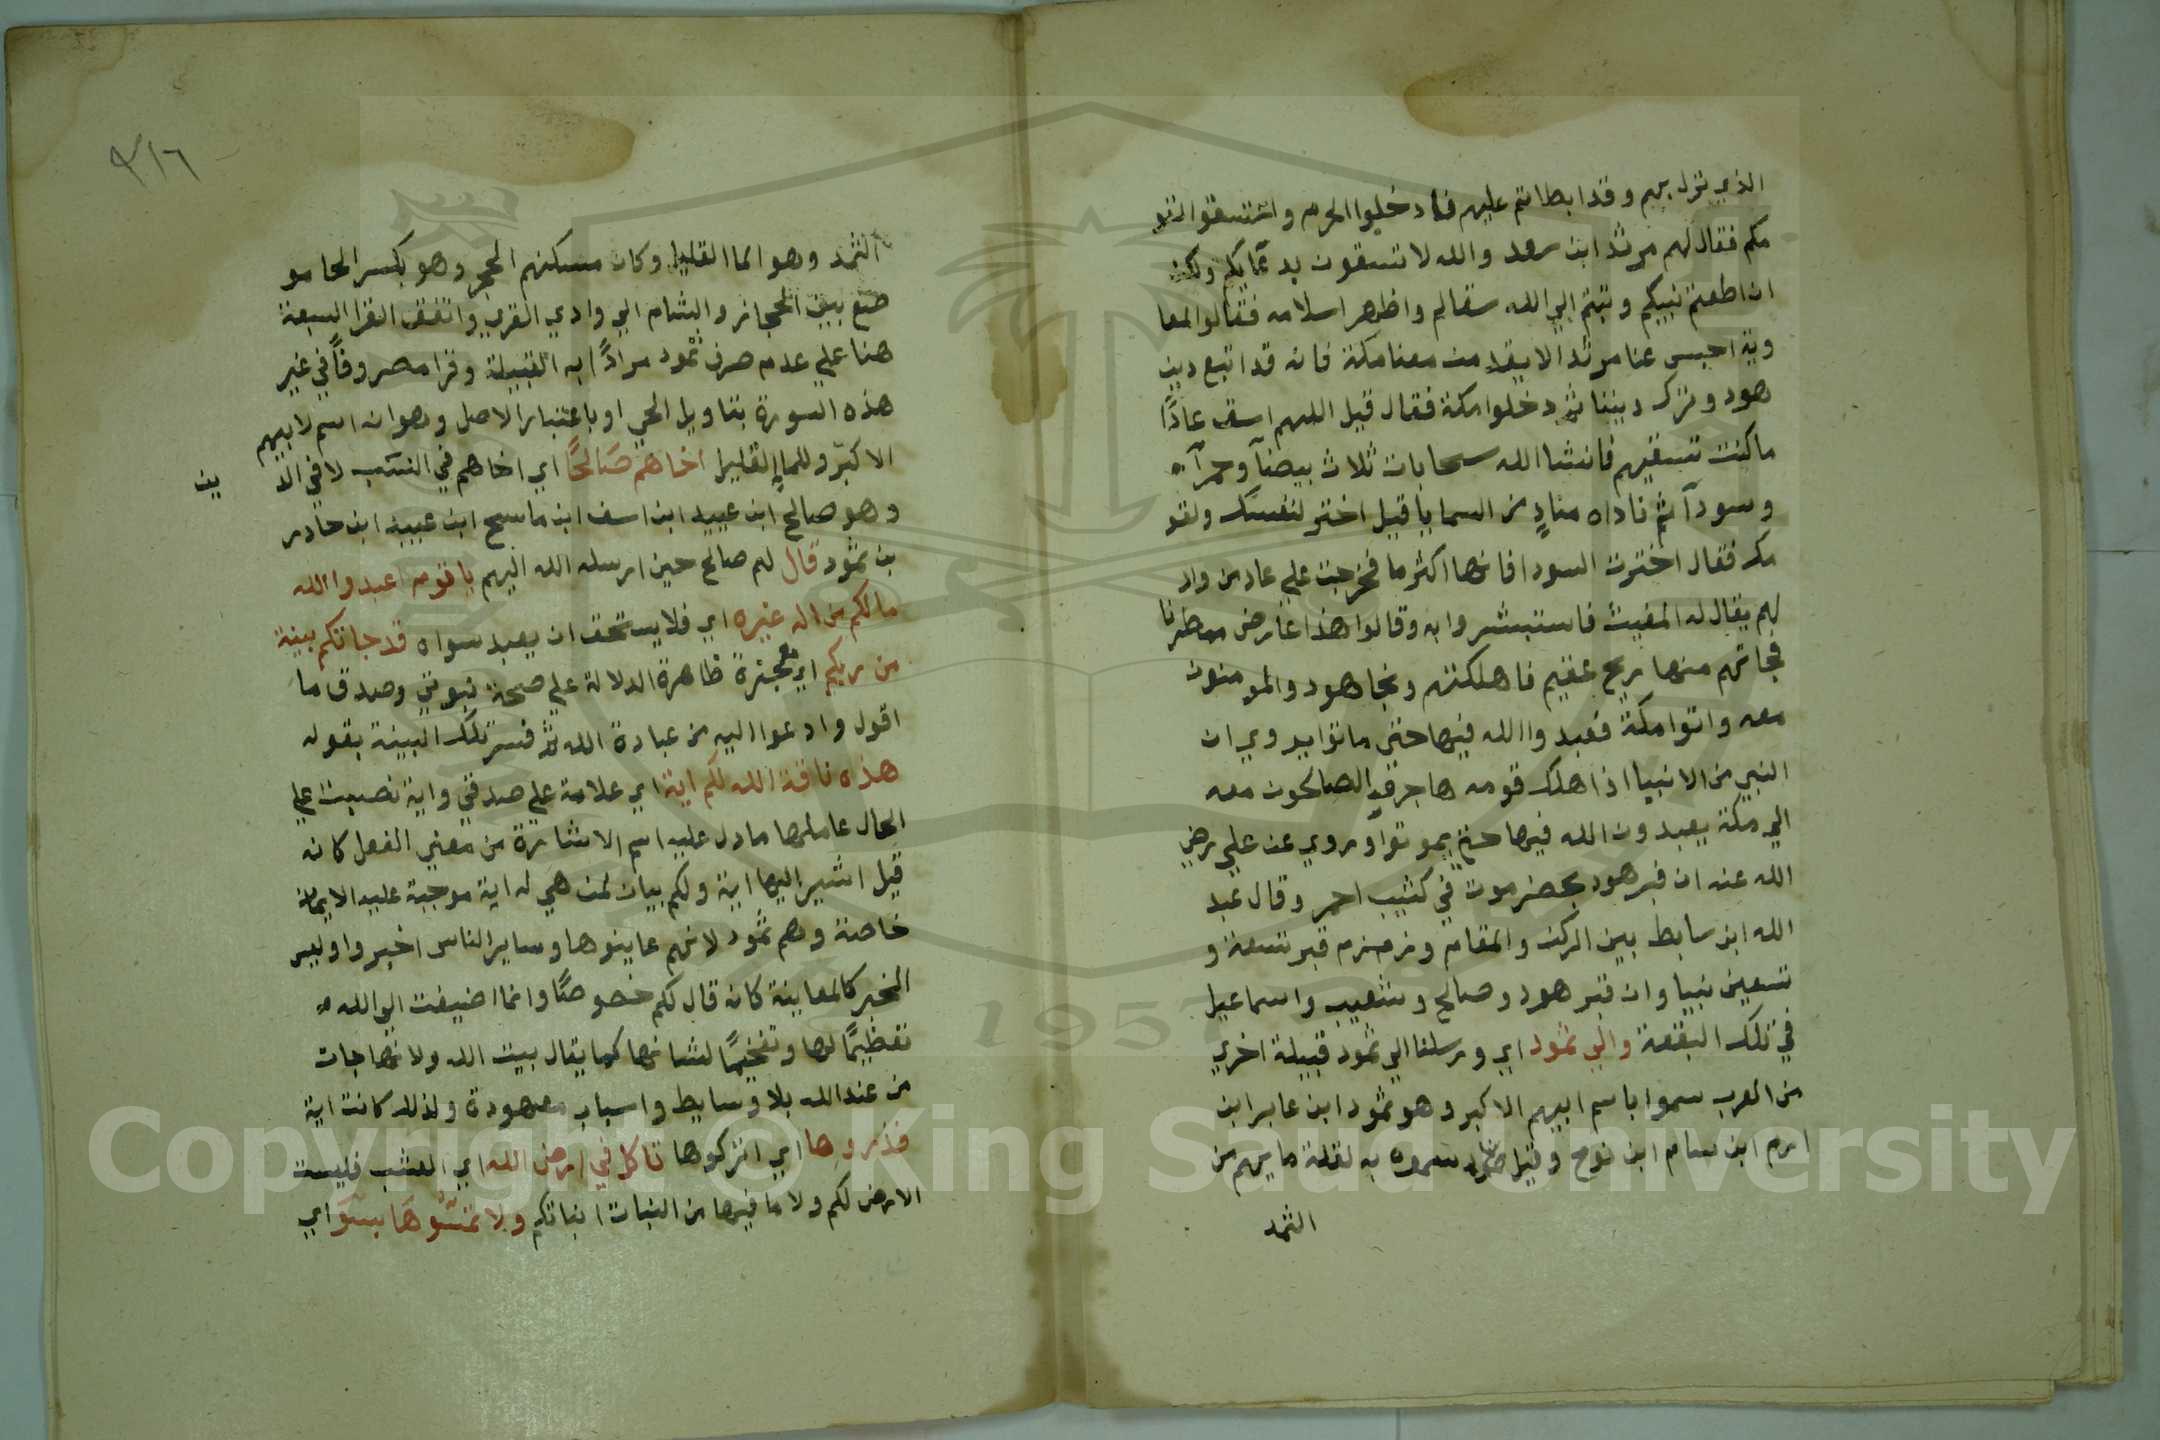 الذي نزل بهم وقد ابطاتم عليهم فادخلوا الحرم واستسقوا لقو
مكم فقال لهم مرثد ابن سعد والله لا تسقون بدعايكم ولكن
ان اطعتم نبيكم وتبتم الي الله سقاكم واظهر اسلامه فقالوا لمعا
وية احبس عنا مرثد الا يقد من معنا مكة فانه قد اتبع دين
هود وترك ديننا ثم دخلوا مكة فقال قيل اللهم اسق عادًا
ما كنت تسقيهم فانشا الله سحابات ثلاث بيضآ وحمرآ
وسودآ ثم ناداه منادٍ من السما يا قيل اختر لنفسك ولقو
مك فقال اخترت السودا فانها اكثر ما فخرجت علي عاد من واد
لهم يقال له المغيث فاستبشروا به وقالوا هذا عارض ممطرنا
فجاتهم منها ريح عقيم فاهلكتهم ونجا هود والمومنون
معه واتوا مكة فعبدوا الله فيها حتي ماتوا يروي ان
النبي من الانبيا اذا هلك قومه هاجر هو والصالحون معه
الي مكة يعبدون الله فيها حتي يموتوا وروي عن علي رضي
الله عنه ان قبر هود بحضرموت في كثيب احمر وقال عبد
الله ابن سابط بين الركن والمقام وزمزم قبر تسعة و
تسعين نبيا وان قبر هود وصالح وشعيب واسماعيل
في تلك البقعة والي ثمود اي وارسلنا الي ثمود قبيلة اخري
من العرب سموا باسم ابيهم الاكبر وهو ثمود ابن عابر ابن
ارم ابن سام ابن نوح وقيل سموه به لقلة مايهم من
الثمد
٣١٦
الثمد وهو الما القليل وكان مسكنهم الحجر وهو بكسر الحا مو
ضع بين الحجاز والشام الي وادي القري واتفق القرا السبعة
هنا علي عدم صرف ثمود مرادًا به القبيلة وقرا مصروفًا في غير
هذه السورة بتاويل الحي او باعتبار الاصل وهو انه اسم لابيهم
الاكبر وللما القليل اخاهم صالحًا اي اخاهم في النسب لا في الد
ين
وهو صالح ابن عبيد ابن اسف ابن ماسح ابن عبيد ابن حادر
بن ثمود قال لهم صالح حين ارسله الله اليهم يا قوم اعبدوا الله
مالكم من اله غيره اي فلا يستحق ان يعبد سواه قد جاتكم بينة
من ربكم اي معجزة ظاهرة الدلالة علي صحة نبوتي وصدق ما
اقول وادعوا اليه من عبادة الله ثم فسر تلك البينة بقوله
هذه ناقة الله لكم اية اي علامة علي صدقي واية نصبت علي
الحال عاملها ما دل عليه اسم الاشارة من معني الفعل كانه
قيل اشير اليها اية ولكم بيان لمن هي له اية موجبة عليه الايمان
خاصة وهم ثمود لانهم عاينوها وساير الناس اخبروا وليس
الخبر كالمعاينة كانه قال لكم خصوصًا وانما اضيفت الي الله
تعظيمًا لها وتفخيمًا لشانها كما يقال بيت الله ولانها جات
من عند الله بلا وسايط واسباب معهودة ولذلك كانت اية
فذروها اي اتركوها تاكل في ارض الله اي العشب فليست
الارض لكم ولا ما فيها من النبات انباتكم ولا تمسّوها بسوَ اي
Copyright © King Saud University
1957